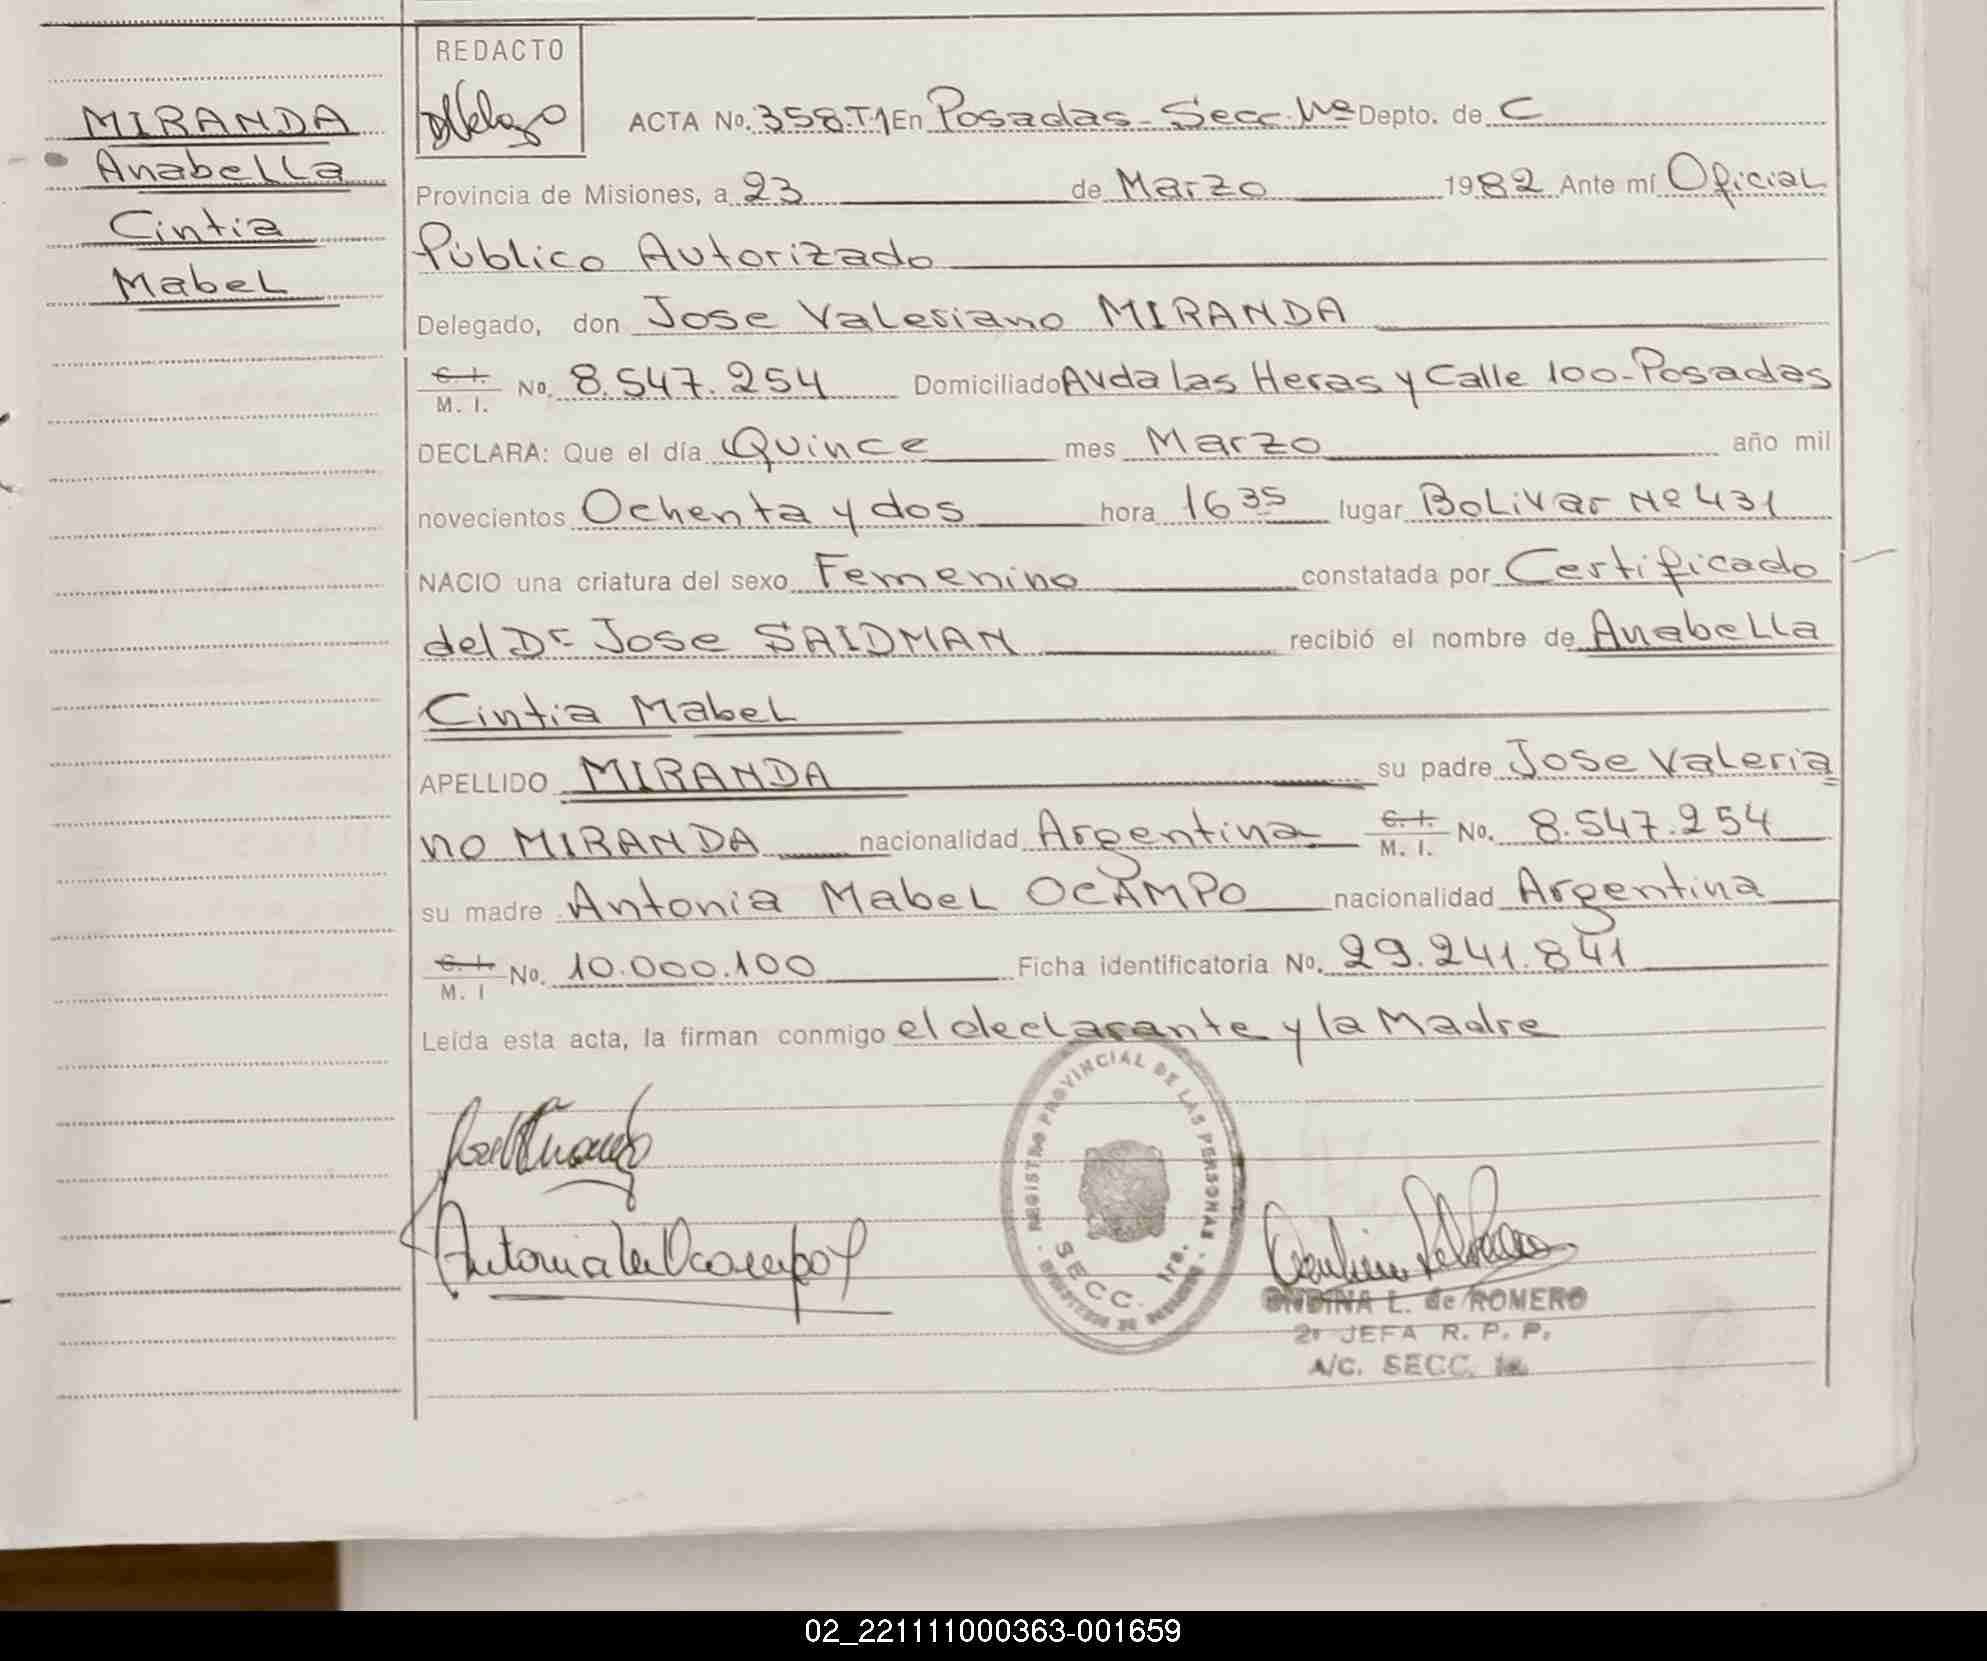 MIRANDA
Anabella
Cintia
Mabel
REDACTO
ACTA No. 358.T.1 En Posadas - Secc. 1ª Depto. de C
Provincia de Misiones, a 23 de Marzo 1982 Ante mí Oficial
Público Autorizado
Delegado, don Jose Valesiano MIRANDA
C. I. M. I. No. 8.547.254 Domiciliado Avda las Heras y Calle 100-Posadas
DECLARA: Que el día Quince mes Marzo año mil
novecientos Ochenta y dos hora 16 35 lugar Bolivar Nº 431
NACIO una criatura del sexo Femenino constatada por Certificado
del Dr Jose SAIDMAN recibió el nombre de Anabella
Cintia Mabel
APELLIDO MIRANDA su padre Jose Valeria
no MIRANDA nacionalidad Argentina C. I. M. I. No. 8.547.254
su madre Antonia Mabel OCAMPO nacionalidad Argentina
C. I. M. I No. 10.000.100 Ficha identificatoria No. 29.241.841
Leída esta acta, la firman conmigo el declarante y la Madre
REGISTRO PROVINCIAL DE LAS PERSONAS
SECC. 1ra.
Antonia Ocampo
ONDINA L. de ROMERO
2ª JEFA R. P. P.
A/C. SECC. 1a.
02_221111000363-001659